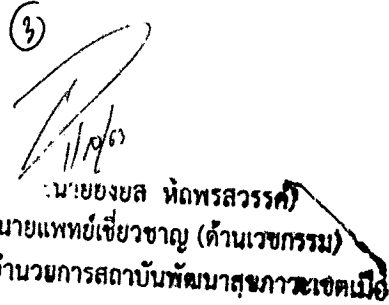 3
1/10/63
(นายยงยส หัถพรสวรรค์)
นายแพทย์เชี่ยวชาญ (ด้านเวชกรรม)
อำนวยการสถาบันพัฒนาสุขภาวะเขตเมือ